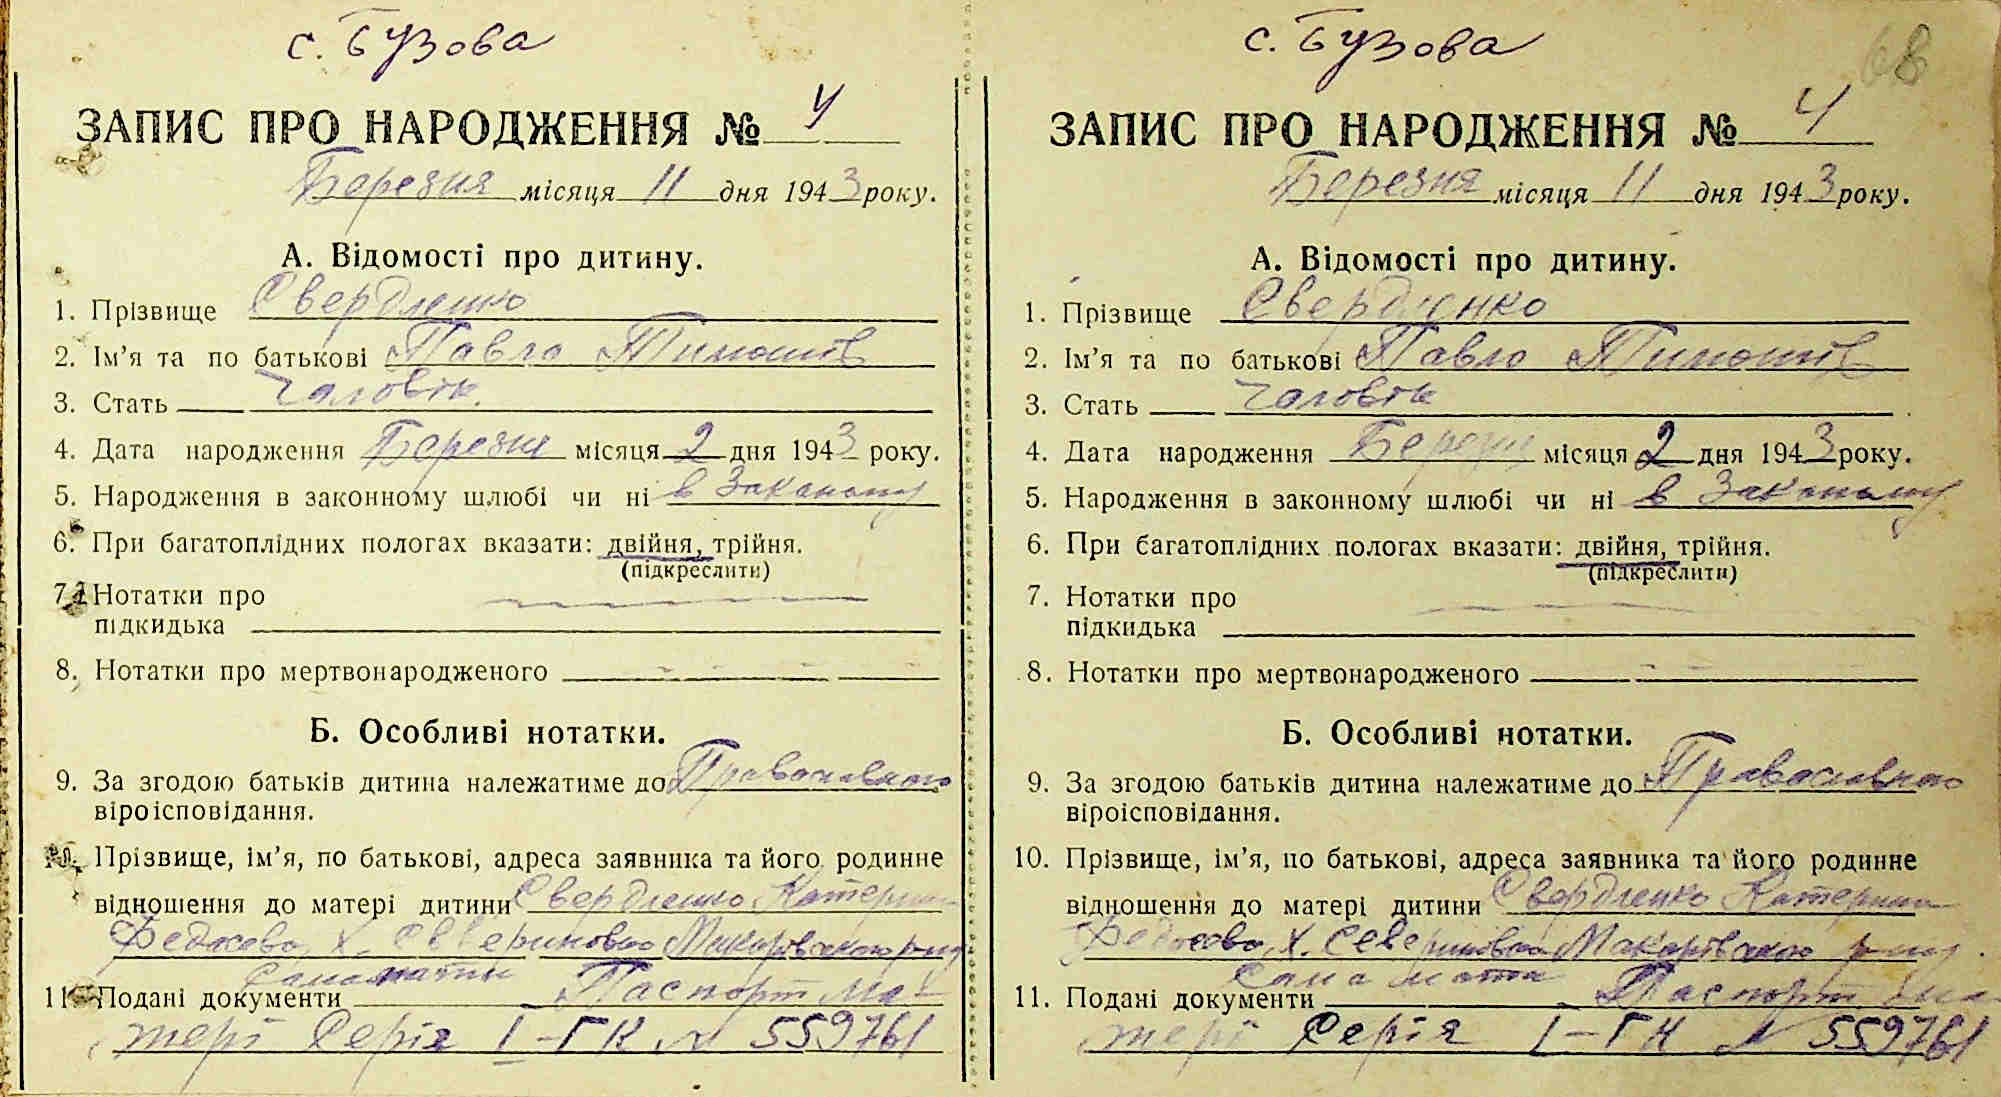 с. Бузова
ЗАПИС ПРО НАРОДЖЕННЯ № 4
Березня місяця 11 дня 1943 року.
А. Відомості про дитину.
1. Прізвище Свердленко
2. Ім’я та по батькові Павло Тимошів
3. Стать Чаловік.
4. Дата народження Березня місяця 2 дня 1943 року.
5. Народження в законному шлюбі чи ні в Законому
6. При багатоплідних пологах вказати: двійня, трійня.
(підкреслити)
7. Нотатки про
підкидька
8. Нотатки про мертвонародженого
Б. Особливі нотатки.
9. За згодою батьків дитина належатиме до Православного
віроісповідання.
10. Прізвище, ім’я, по батькові, адреса заявника та його родинне
відношення до матері дитини Свердленко Катерина
Федосова, х. Севериновка Макарівского
сама мати
11. Подані документи Паспорт ма-
тері Серія І-ГК № 559761
с. Бузова
68
ЗАПИС ПРО НАРОДЖЕННЯ № 4
Березня місяця 11 дня 1943 року.
А. Відомості про дитину.
1. Прізвище Свердленко
2. Ім’я та по батькові Павло Тимошів
3. Стать Чаловік
4. Дата народження Березня місяця 2 дня 1943 року.
5. Народження в законному шлюбі чи ні в Законому
6. При багатоплідних пологах вказати: двійня, трійня.
(підкреслити)
7. Нотатки про
підкидька
8. Нотатки про мертвонародженого
Б. Особливі нотатки.
9. За згодою батьків дитина належатиме до Православного
віроісповідання.
10. Прізвище, ім’я, по батькові, адреса заявника та його родинне
відношення до матері дитини Свердленко Катерина
Федосова, х. Севериновка Макарівского
сама мати
11. Подані документи Паспорт ма-
тері Серія І-ГК № 559761